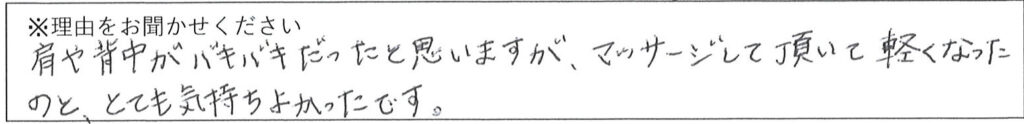 ※理由をお聞かせください
肩や背中がバキバキだったと思いますが、マッサージして頂いて軽くなった
のと、とても気持ちよかったです。